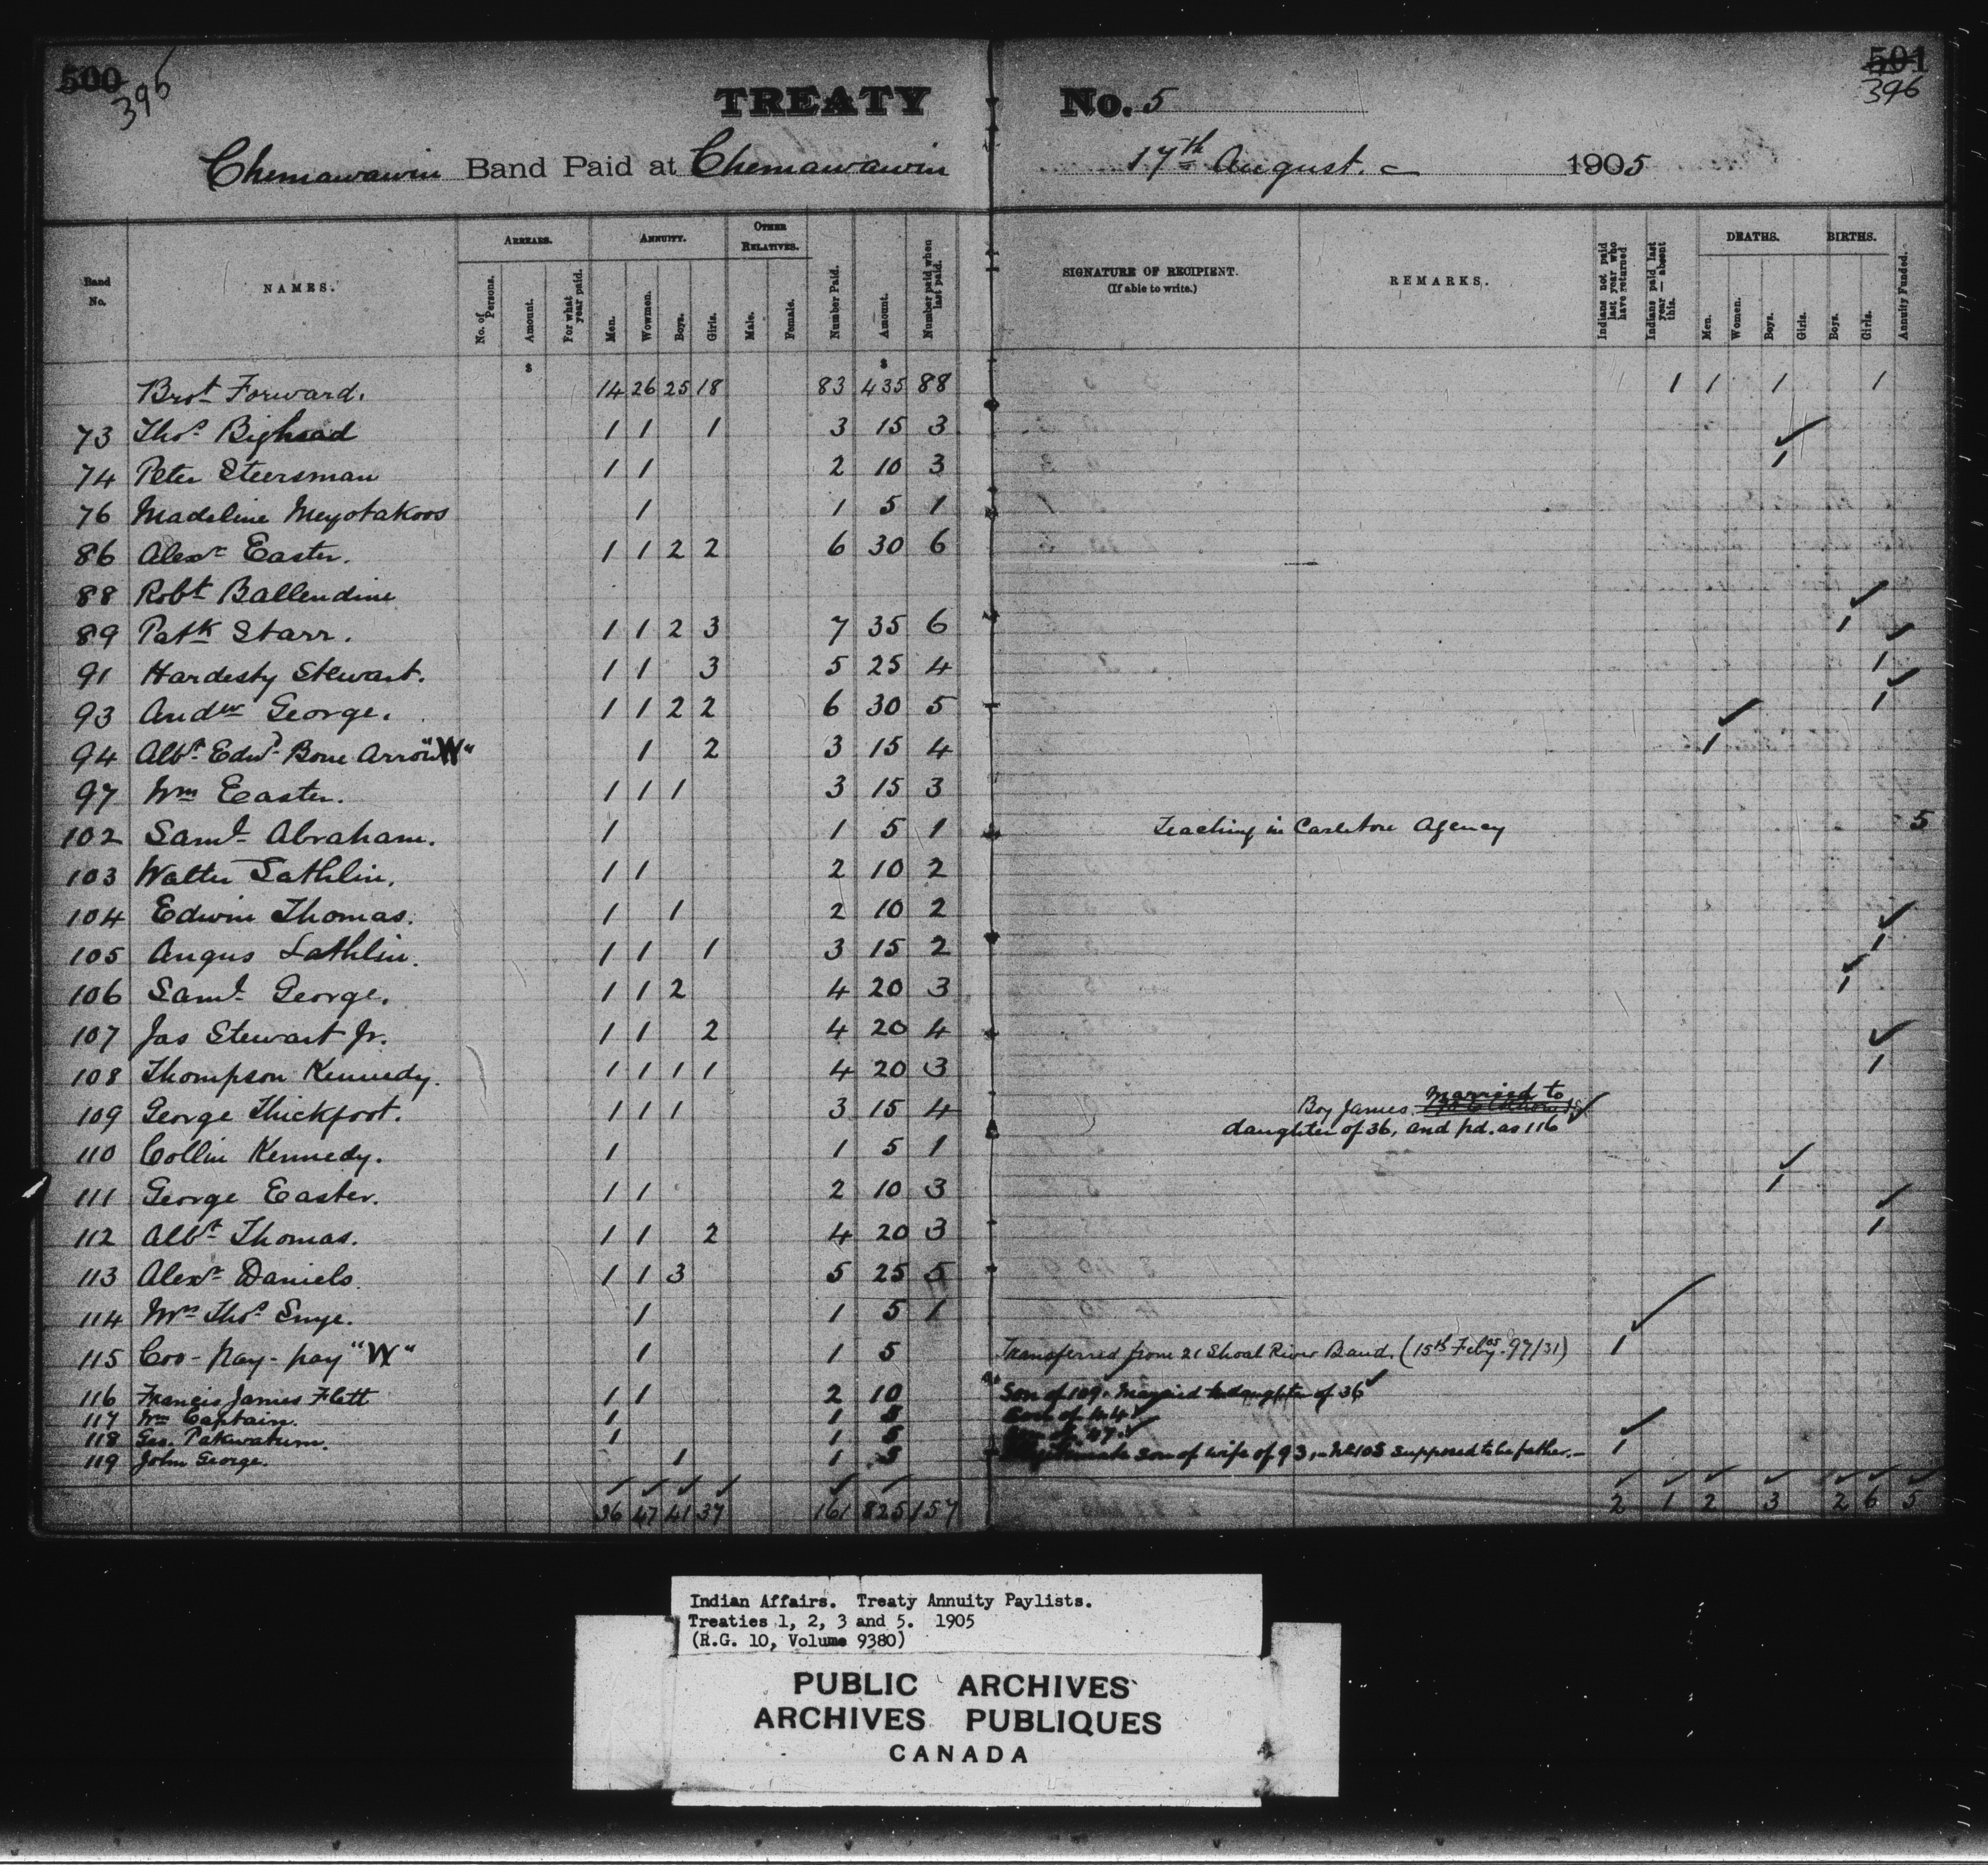 500
396
TREATY No. 5
501
396
Chemawawin Band Paid at Chemawawin 17th August. 1905
Band No.
NAMES.
ARREARS.
No. of Persons.
Amount.
For what year paid.
ANNUITY.
Men.
Women.
Boys.
Girls.
OTHER RELATIVES.
Male.
Female.
Number Paid.
Amount.
Number paid when last paid.
SIGNATURE OF RECIPIENT.
(If able to write.)
REMARKS.
Indians not paid last year who have returned
Indians paid last year — absent this.
DEATHS.
Men.
Women.
Boys.
Girls.
BIRTHS.
Boys.
Girls.
Annuity Funded.
$ $
Brot Forward. 14 26 25 18 83 435 88 1 1 1 1
73 Thos. Bighead 1 1 1 3 15 3
74 Peter Steersman 1 1 2 10 3 1
76 Madeline Meyotakoos 1 1 5 1
86 Alexr Easter. 1 1 2 2 6 30 6
88 Robt Ballendine
89 Patk Starr. 1 1 2 3 7 35 6 1
91 Hardesty Stewart. 1 1 3 5 25 4 1
93 Andw George. 1 1 2 2 6 30 5 1
94 Albt Edwd Bone Arrow "W" 1 2 3 15 4 1
97 Wm Easter. 1 1 1 3 15 3
102 Saml Abraham. 1 1 5 1 Teaching in Carleton Agency 5
103 Walter Lathlin. 1 1 2 10 2
104 Edwin Thomas. 1 1 2 10 2
105 Angus Lathlin. 1 1 1 3 15 2 1
106 Saml George. 1 1 2 4 20 3 1
107 Jas Stewart Jr. 1 1 2 4 20 4
108 Thompson Kennedy. 1 1 1 1 4 20 3 1
109 George Thickfoot. 1 1 1 3 15 4 Boy James married to
daughter of 36, and pd. as 116
110 Collin Kennedy. 1 1 5 1
111 George Easter. 1 1 2 10 3 1
112 Albt Thomas. 1 1 2 4 20 3 1
113 Alexr Daniels 1 1 3 5 25 5
114 Mrs Thos 1 1 5 1
115 Coo-pay-pay "W" 1 1 5 Transferred from 21 Shoal River Band. (15th Feby 05 - 97/31) 1
116 Francis James Flett 1 1 2 10 Son of 109. Married to daughter of 36
117 Wm Captain. 1 1 5 Son of
118 Geo. Pakwatum. 1 1 5
119 John George. 1 1 5 son of wife of 93, No 105 supposed to be father. 1
36 47 41 37 161 825 157 2 1 2 3 2 6 5
Indian Affairs. Treaty Annuity Paylists.
Treaties 1, 2, 3 and 5. 1905
(R.G. 10, Volume 9380)
PUBLIC ARCHIVES
ARCHIVES PUBLIQUES
CANADA